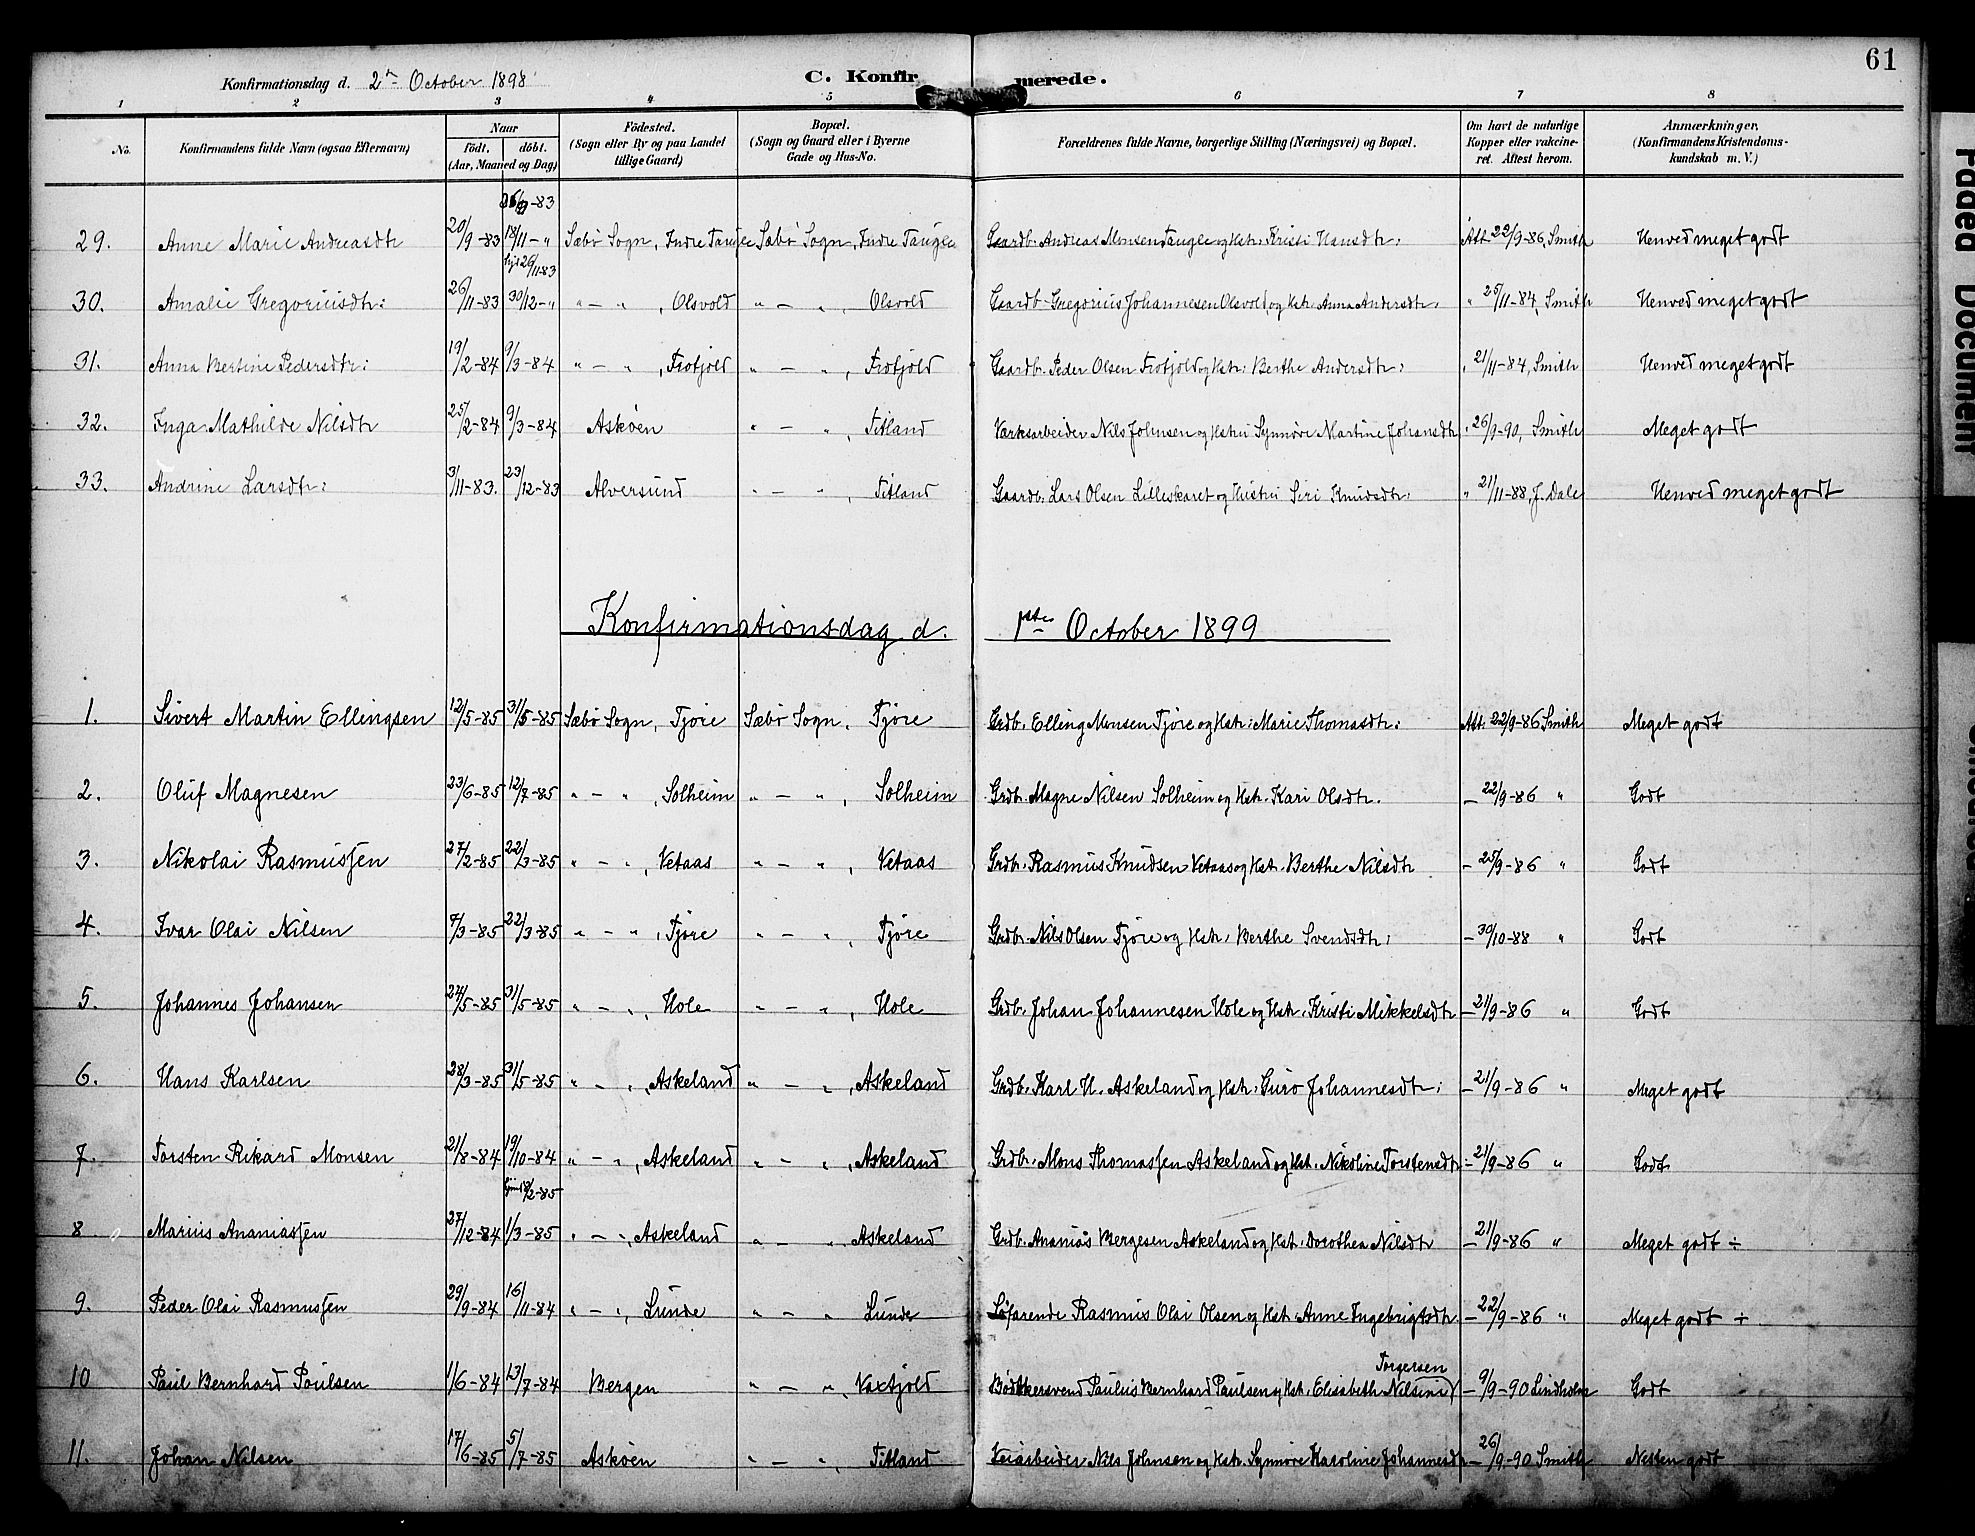 61
Konfirmationsdag d. 2den October 1898
C. Konfirmerede.
1 2 3 4 5 6 7 8
No. Konfirmandens fulde Navn (ogsaa Efternavn) Naar Födt. döbt. (Aar, Maaned og Dag) Födested. (Sogn eller By og paa Landet tillige Gaard) Bopæl. (Sogn og Gaard eller i Byerne Gade og Hus-No. Forældrenes fulde Navne, borgerlige Stilling (Næringsvei) og Bopæl. Om havt de naturlige Kopper eller vakcineret. Attest herom. Anmærkninger. (Konfirmandens Kristendomskundskab m. V.)
29. Anne Marie Andreasdtr 20/9-83 18/11-" Sæbø Sogn, Indre Taugle Sæbø Sogn, Indre Taugle Gaardb. Andreas Monsen Taugle og Hstr: Kristi Hansdtr: Att 22/9-86, Smith Henved meget godt
hjd 26/11-83
30. Amalie Gregoriusdtr: 26/11-83 30/12-" " - ", Olsvold " - ", Olsvold Gaardb. Gregorius Johannesen Olsvold, og Hstr: Anna Andersdtr: " 25/11-84, Smith Henved meget godt
31. Anna Bertine Pedersdtr: 19/2-84 9/3-84 " - ", Frotjold " - ", Frotjold Gaardb. Peder Olsen Frotjold og Hstr: Berthe Andersdtr: " 21/11-84, Smith Henved meget godt
32. Inga Mathilde Nilsdtr 25/2-84 9/3-84 Askøen " - ", Titland Værksarbeider Nils Johnsen og Hstru Synnøve Martine Johansdtr " 26/9-90, Smith Meget godt
33. Andrine Larsdtr: 3/11-83. 23/12-83 Alversund " - ", Titland Gaardb. Lars Olsen Lilleskaret og Hustru Siri Knudsdtr: " 21/11-88, J. Dale Henved meget godt
Konfirmationsdag d. 1ste October 1899
1. Sivert Martin Ellingsen 12/5-85 31/5-85 Sæbø Sogn, Tjore Sæbø Sogn, Tjore Grdb. Elling Monsen Tjore og Hstr: Marie Thomasdtr: Att: 22/9-86 Smith Meget godt
2. Oluf Magnesen 23/6-85 12/7-85 " - ", Solheim " - ", Solheim Grdb. Magne Nilsen Solheim og Hstr. Kari Olsdtr. - 22/9-86 " Godt
3. Nikolai Rasmussen 27/2-85 22/3-85 " - ", Vetaas " - ", Vetaas Grdb. Rasmus Knudsen Vetaas og Hstr. Berthe Nilsdtr - 25/9-86 " Godt
4. Ivar Olai Nilsen 7/3-85 22/3-85 " - ", Tjore " - ", Tjore Grdb. Nils Olsen Tjore og Hstr: Berthe Svendsdtr: - 30/10-88 " Godt
5. Johannes Johansen 24/5-85 31/5-85 " - ", Hole " - ", Hole Grdb. Johan Johannesen Hole og Hstr. Kristi Mikkelsdtr - 21/9-86 " Godt
6. Hans Karlsen 28/3-85 31/5-85 " - ", Askeland " - ", Askeland Grdb. Karl H. Askeland og Hstr: Guro Johannesdtr: - 21/9-86 " Meget godt
7. Torsten Rikard Monsen 21/8-84 19/10-84 " - ", Askeland " - ", Askeland Grdb. Mons Thomassen Askeland og Hst. Nikoline Torstensdtr - 21/9-86 " Godt
8. Marius Ananiassen 27/12-84 1/3-85 " - ", Askeland " - ", Askeland Grdb. Ananias Mergesen Askeland og Hst. Dorothea Nilsdtr - 21/9-86 " Meget godt ÷
9. Peder Olai Rasmussen 29/9-84 16/11-84 " - ", Lunde " - ", Lunde Søfarende Rasmus Olai Olsen og Hst: Anne Ingebrigtsdtr. - 22/9-86 " Meget godt ÷
Torgersen
10 Paul Bernhard Paulsen 1/6-84 13/7-84 Bergen " - ", Vaxtjold Bødkersvend Paulus Bernhard Paulsen og Hst: Elisabeth Nilsine - 9/9-90 Lindholm Godt
11. Johan Nilsen 17/6-85 5/7-85 Askøen " - ", Titland Veiarbeider Nils Johnsen og Hstr. Synnøve Karoline Johannesdtr - 26/9-90 Smith Nesten godt
Faded Document